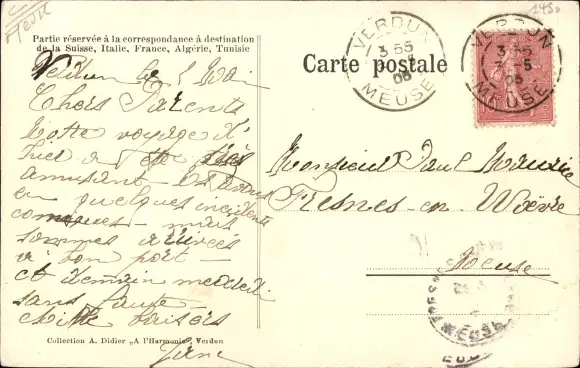 Meuse
1450
Partie réservée à la correspondance à destination
de la Suisse, Italie, France, Algérie, Tunisie
Carte postale
VERDUN
3 55
05
MEUSE
VERDUN
3 55
7 - 5
05
MEUSE
Verdun le 5 Mai
Chers Parents
Notre voyage d'
hier a été très
amusant
quelques incidents
comiques - mais
sommes arrivées
à bon port -
et demain mercredi
sans faute
Mille baisers
Monsieur Paul
Fresnes-en-Woëvre
Meuse
MEUSE
Collection A. Didier „A l'Harmonie„ Verdun